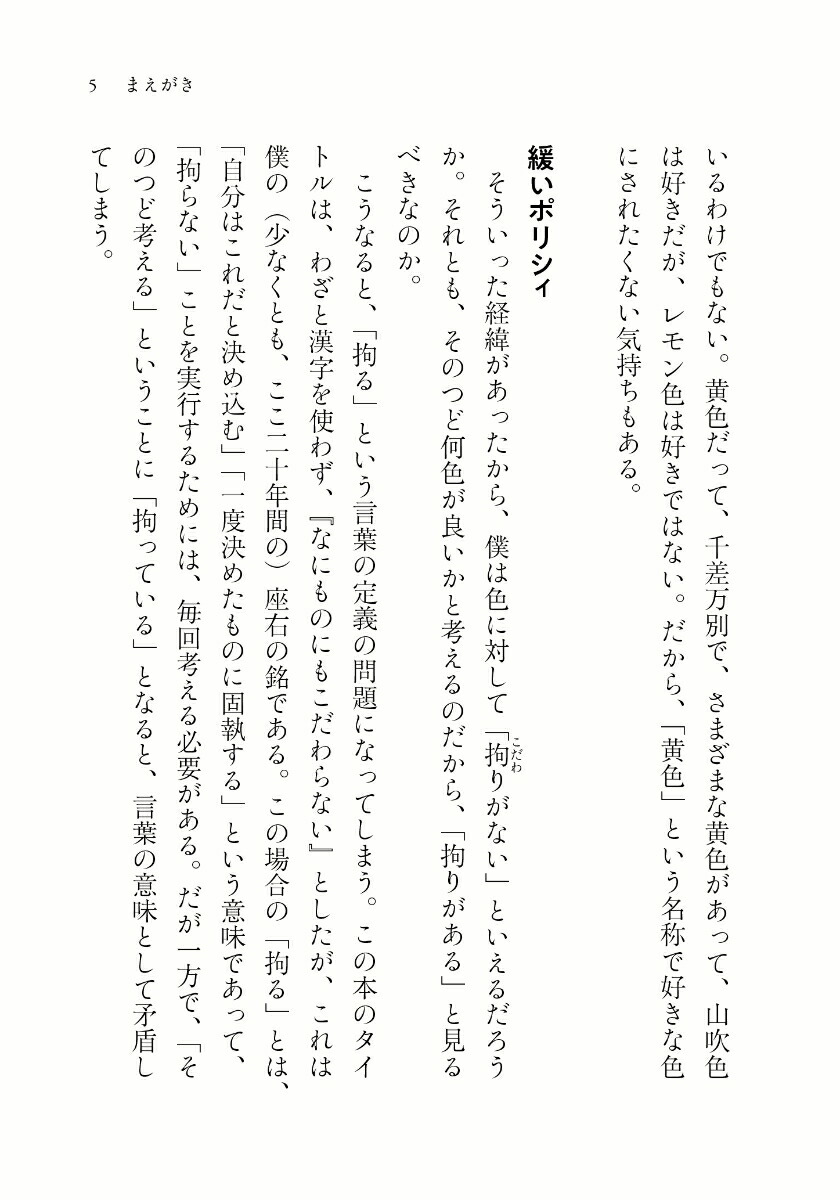 5 まえがき
いるわけでもない。黄色だって、千差万別で、さまざまな黄色があって、山吹色
は好きだが、レモン色は好きではない。だから、「黄色」という名称で好きな色
にされたくない気持ちもある。
緩いポリシィ
そういった経緯があったから、僕は色に対して「拘りがない」といえるだろう
こだわ
か。それとも、そのつど何色が良いかと考えるのだから、「拘りがある」と見る
べきなのか。
こうなると、「拘る」という言葉の定義の問題になってしまう。この本のタイ
トルは、わざと漢字を使わず、『なにものにもこだわらない』としたが、これは
僕の（少なくとも、ここ二十年間の）座右の銘である。この場合の「拘る」とは、
「自分はこれだと決め込む」「一度決めたものに固執する」という意味であって、
「拘らない」ことを実行するためには、毎回考える必要がある。だが一方で、「そ
のつど考える」ということに「拘っている」となると、言葉の意味として矛盾し
てしまう。